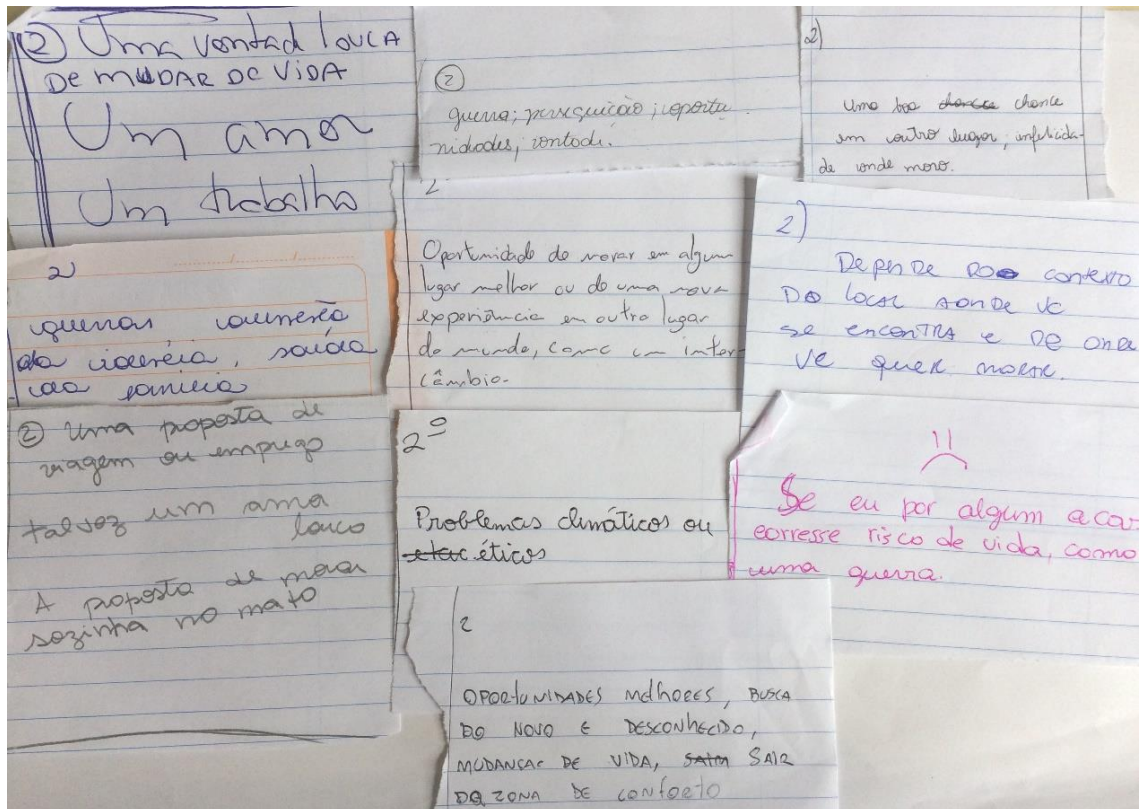 ② Uma vontad louca
DE MUDAR DE VIDA
Um amor
Um trabalho
②
guerra; perseguição; oportu
nidades; vontade.
2)
Uma boa chance
em outro lugar; infelicida-
de onde moro.
2
guerras
da violência, saída
da família
2
Oportunidade de morar em algum
lugar melhor ou de uma nova
experiência em outro lugar
do mundo, como um inter-
câmbio.
2)
DEPENDE DO CONTEXTO
DO LOCAL AONDE VC
SE ENCONTRA E DE ONDE
VC QUER MORAR.
② Uma proposta de
viagem ou emprego
talvez um amor
louco
A proposta de morar
sozinha no mato
2º
Problemas climáticos ou
éticos
Se eu por algum acaso
corresse risco de vida, como
uma guerra.
2
OPORTUNIDADES MELHORES, BUSCA
DO NOVO E DESCONHECIDO,
MUDANÇAS DE VIDA, SAIR
DA ZONA DE CONFORTO